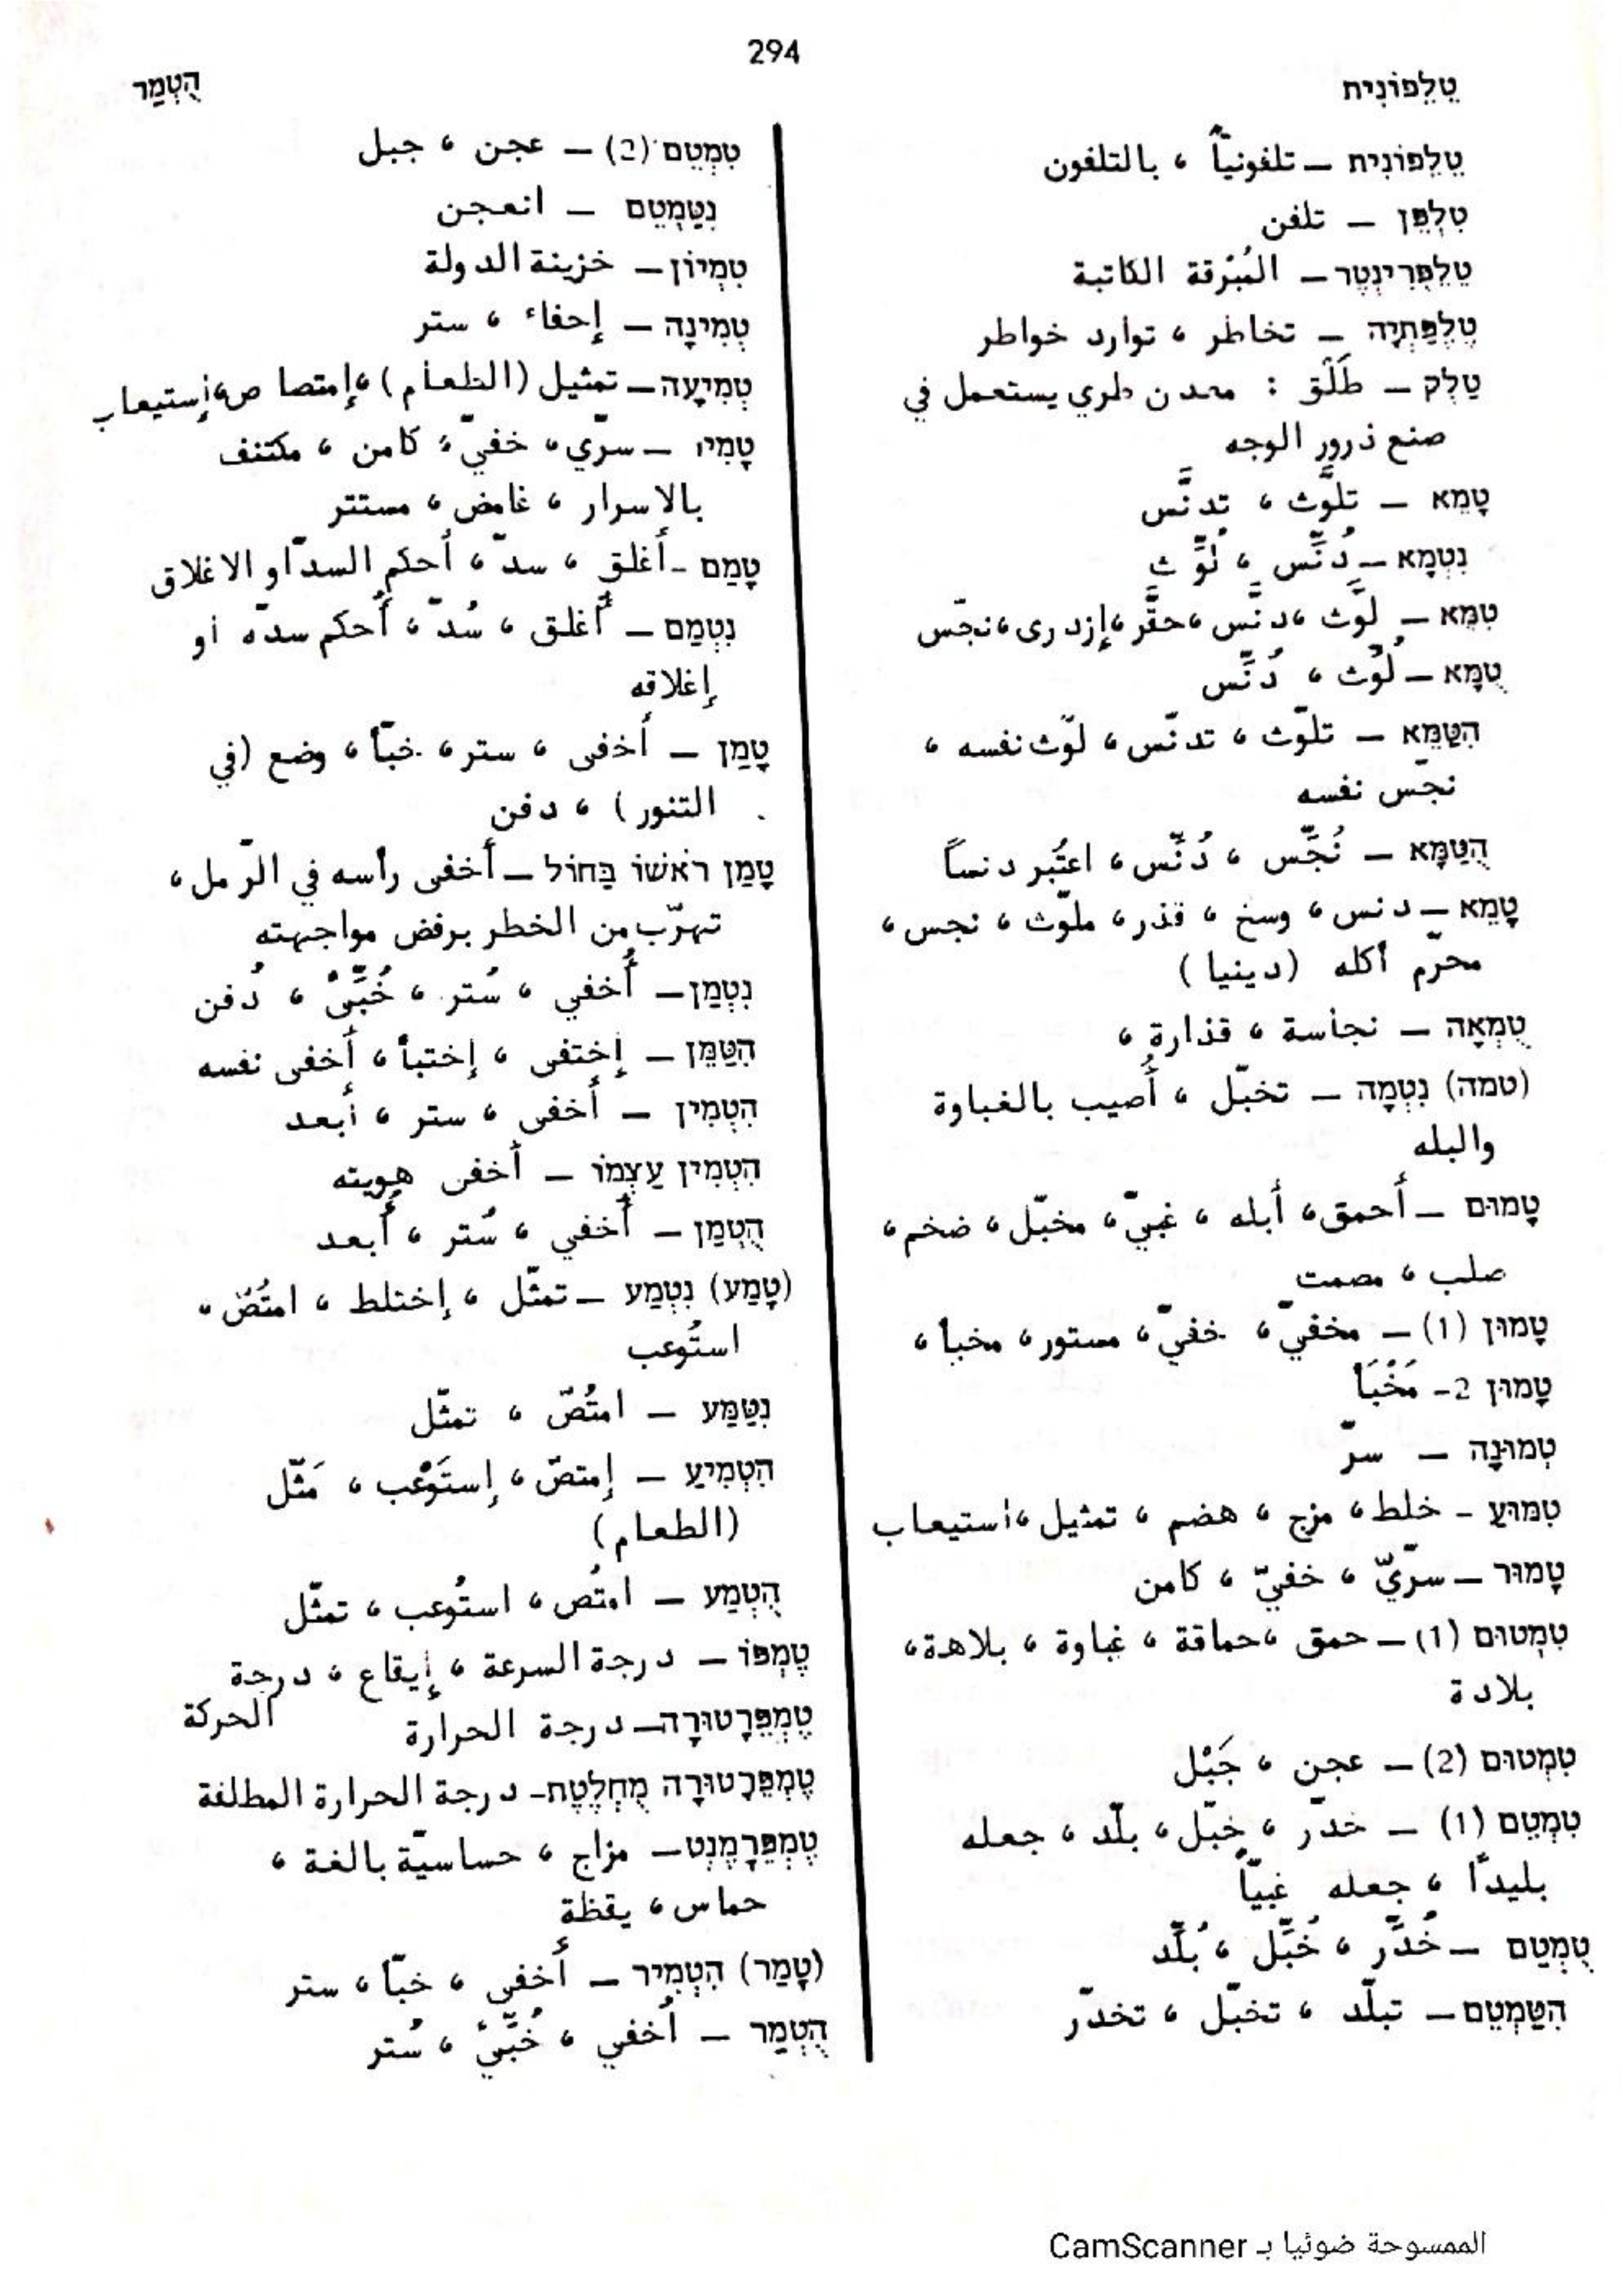 294
טֶלֶפוֹנִית
הֻטְמַר
טֶלֶפוֹנִית – تلفونياً ، بالتلفون
טִלְפֵּן – تلفن
טֶלֶפְּרִינְטֶר – المُبْرِقة الكاتبة
טֶלֶפַּתְיָה – تخاطر ، توارد خواطر
טַלְק – طَلْق : معدن طري يستعمل في
صنع ذرور الوجه
טָמֵא – تلوَّث ، تدنَّس
נִטְמָא – دُنِّس ، لُوِّث
טִמֵּא – لوَّث ، دنَّس ، حقَّر ، إزدرى ، نجّس
טֻמָּא – لُوِّث ، دُنِّس
הִטַּמֵּא – تلوّث ، تدنّس ، لوّث نفسه ،
نجّس نفسه
הֻטַּמָּא – نُجِّس ، دُنِّس ، اعتُبر دنساً
טָמֵא – دنس ، وسخ ، قذر ، ملوّث ، نجس ،
محرّم أكله (دينيا)
טֻמְאָה – نجاسة ، قذارة ،
(טמה) נִטְמָה – تخبّل ، أُصيب بالغباوة
والبله
טָמוּם – أحمق ، أبله ، غبيّ ، مخبّل ، ضخم ،
صلب ، مصمت
טָמוּן (1) – مخفيّ ، خفيّ ، مستور ، مخبأ ،
טָמוּן 2- مَخْبَأ
טְמוּנָה – سرّ
טִמּוּעַ – خلط ، مزج ، هضم ، تمثيل ، استيعاب
טָמוּר – سرّيّ ، خفيّ ، كامن
טִמְטוּם (1) – حمق ، حماقة ، غباوة ، بلاهة ،
بلادة
טִמְטוּם (2) – عجن ، جَبْل
טִמְטֵם (1) – خدّر ، خبّل ، بلّد ، جعله
بليدًا ، جعله غبيّاً
טֻמְטַם – خُدَّر ، خُبِّل ، بُلِّد
הִטַּמְטֵם – تبلّد ، تخبّل ، تخدّر
טִמְטֵם (2) – عجن ، جبل
נִטַּמְטֵם – انعجن
טִמְיוֹן – خزينة الدولة
טְמִינָה – إحفاء ، ستر
טְמִיעָה – تمثيل (الطعام) ، إمتصاص ، إستيعاب
טָמִיר – سرّي ، خفيّ ، كامن ، مكتنف
بالاسرار ، غامض ، مستتر
טָמַם – أغلق ، سدّ ، أحكم السدّ او الاغلاق
נִטְמַם – أُغلق ، سُدّ ، أُحكم سدّه أو
إغلاقه
טָמַן – أخفى ، ستر ، خبّأ ، وضع (في
التنور) ، دفن
טָמַן רֹאשׁוֹ בַּחוֹל – أخفى رأسه في الرّمل ،
تهرّب من الخطر برفض مواجهته
נִטְמַן – أُخفي ، سُتر ، خُبِّئ ، دُفن
הִטַּמֵּן – إختفى ، إختبأ ، أخفى نفسه
הִטְמִין – أخفى ، ستر ، أبعد
הִטְמִין עַצְמוֹ – أخفى هويته
הֻטְמַן – أُخفي ، سُتر ، أُبعد
(טָמַע) נִטְמַע – تمثّل ، إختلط ، امتُصّ ،
استُوعب
נִטַּמַּע – امتُصّ ، تمثّل
הִטְמִיעַ – إمتصّ ، إستَوْعب ، مَثّل
(الطعام)
הֻטְמַע – امتُص ، استُوعب ، تمثّل
טֶמְפּוֹ – درجة السرعة ، إيقاع ، درجة
الحركة
טֶמְפֵּרָטוּרָה – درجة الحرارة
טֶמְפֵּרָטוּרָה מֻחְלֶטֶת – درجة الحرارة المطلقة
טֶמְפֵּרָמֶנְט – مزاج ، حساسيّة بالغة ،
حماس ، يقظة
(טָמַר) הִטְמִיר – أخفى ، خبّأ ، ستر
הֻטְמַר – أُخفي ، خُبِّئ ، سُتر
الممسوحة ضوئيا بـ CamScanner